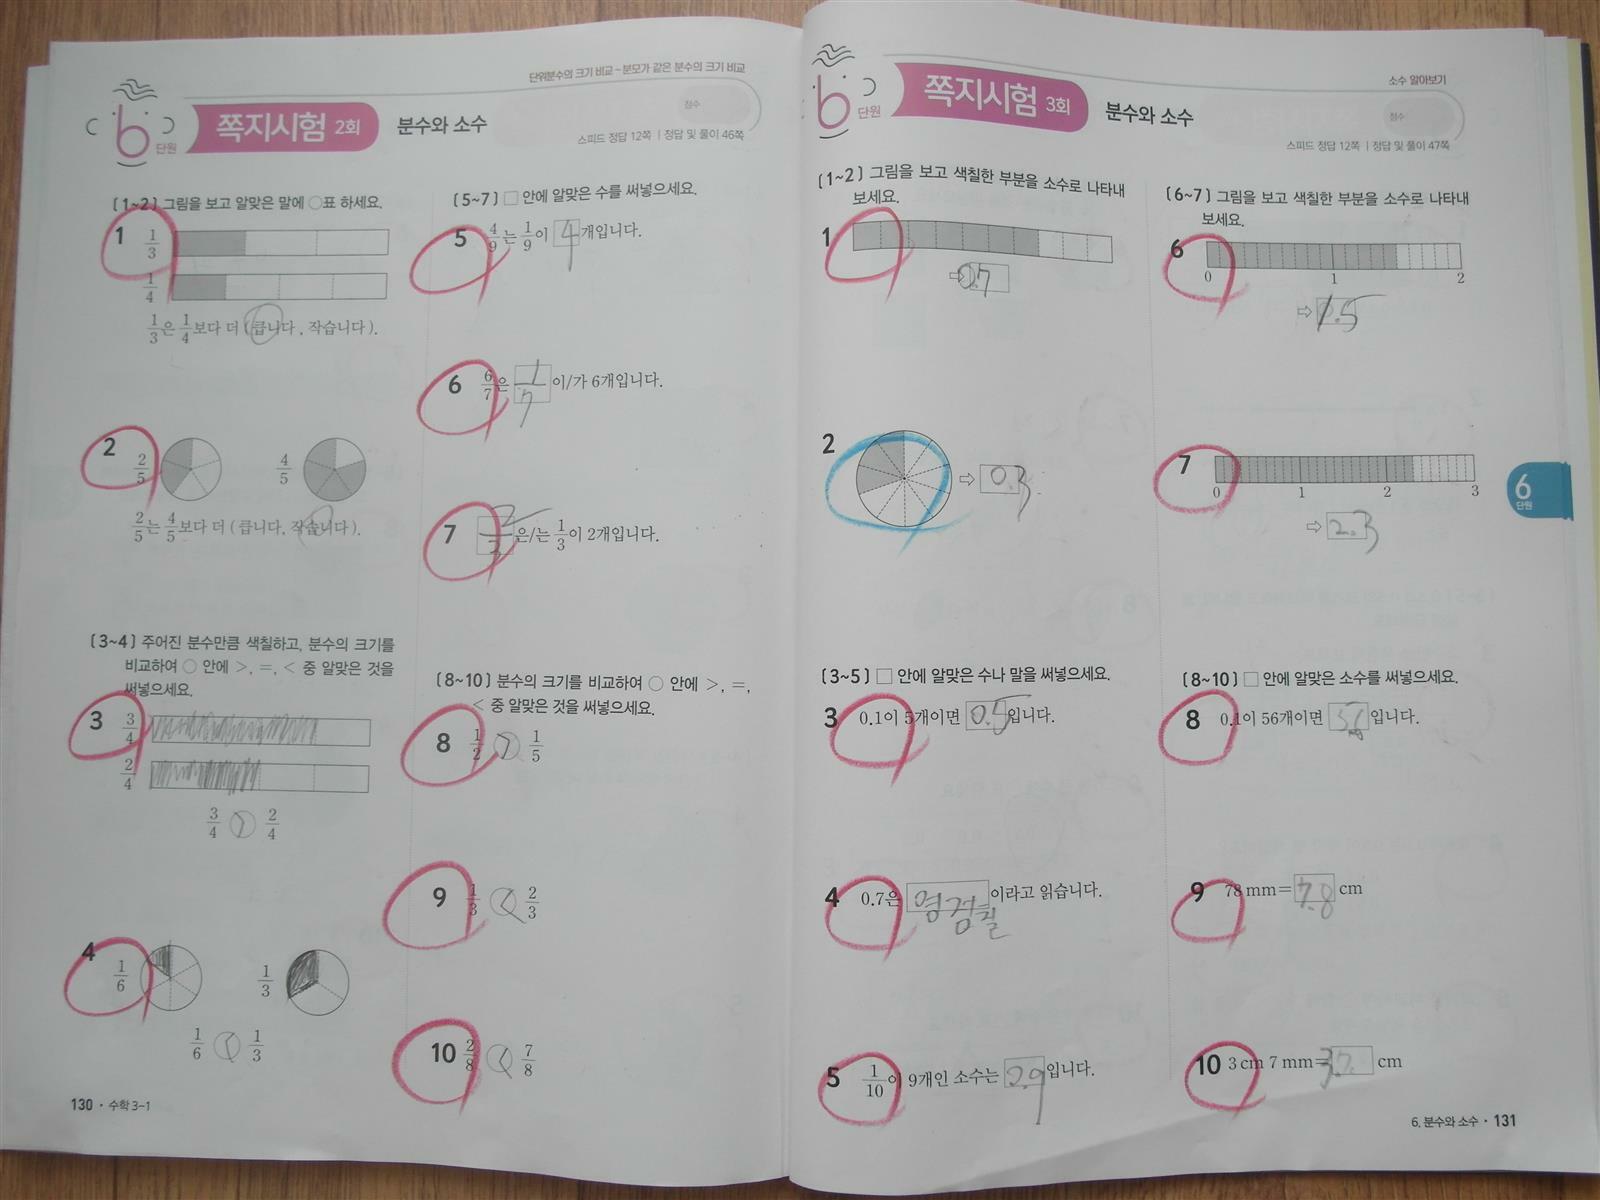 단위분수의 크기 비교 ~ 분모가 같은 분수의 크기 비교
6 단원 쪽지시험 2회 분수와 소수
점수
스피드 정답 12쪽 | 정답 및 풀이 46쪽
[1~2] 그림을 보고 알맞은 말에 ○표 하세요.
1 1/3
1/4
1/3은 1/4보다 더 (큽니다, 작습니다).
2 2/5 4/5
2/5는 4/5보다 더 (큽니다, 작습니다).
[3~4] 주어진 분수만큼 색칠하고, 분수의 크기를
비교하여 ○ 안에 >, =, < 중 알맞은 것을
써넣으세요.
3 3/4
2/4
3/4 > 2/4
4 1/6 1/3
1/6 < 1/3
[5~7] □ 안에 알맞은 수를 써넣으세요.
5 4/9는 1/9이 4개입니다.
6 6/7은 1/7이/가 6개입니다.
7 2/3은/는 1/3이 2개입니다.
[8~10] 분수의 크기를 비교하여 ○ 안에 >, =,
< 중 알맞은 것을 써넣으세요.
8 1/2 > 1/5
9 1/3 < 2/3
10 2/8 < 7/8
130 · 수학 3-1
소수 알아보기
6 단원 쪽지시험 3회 분수와 소수
점수
스피드 정답 12쪽 | 정답 및 풀이 47쪽
[1~2] 그림을 보고 색칠한 부분을 소수로 나타내
보세요.
1
⇨ 0.7
2 ⇨ 0.3
[3~5] □ 안에 알맞은 수나 말을 써넣으세요.
3 0.1이 5개이면 0.5입니다.
4 0.7은 영점칠이라고 읽습니다.
5 1/10이 9개인 소수는 0.9입니다.
[6~7] 그림을 보고 색칠한 부분을 소수로 나타내
보세요.
6
0 1 2
⇨ 1.5
7
0 1 2 3
⇨ 2.3
[8~10] □ 안에 알맞은 소수를 써넣으세요.
8 0.1이 56개이면 5.6입니다.
9 78 mm= 7.8 cm
10 3 cm 7 mm= 3.7 cm
6 단원
6. 분수와 소수 · 131